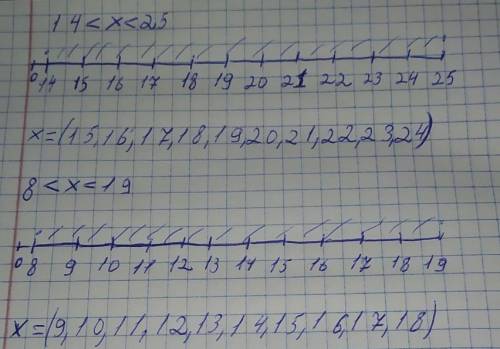 14<x<25
0 14 15 16 17 18 19 20 21 22 23 24 25
x=(15,16,17,18,19,20,21,22,23,24)
8<x<19
0 8 9 10 11 12 13 14 15 16 17 18 19
x=(9,10,11,12,13,14,15,16,17,18)